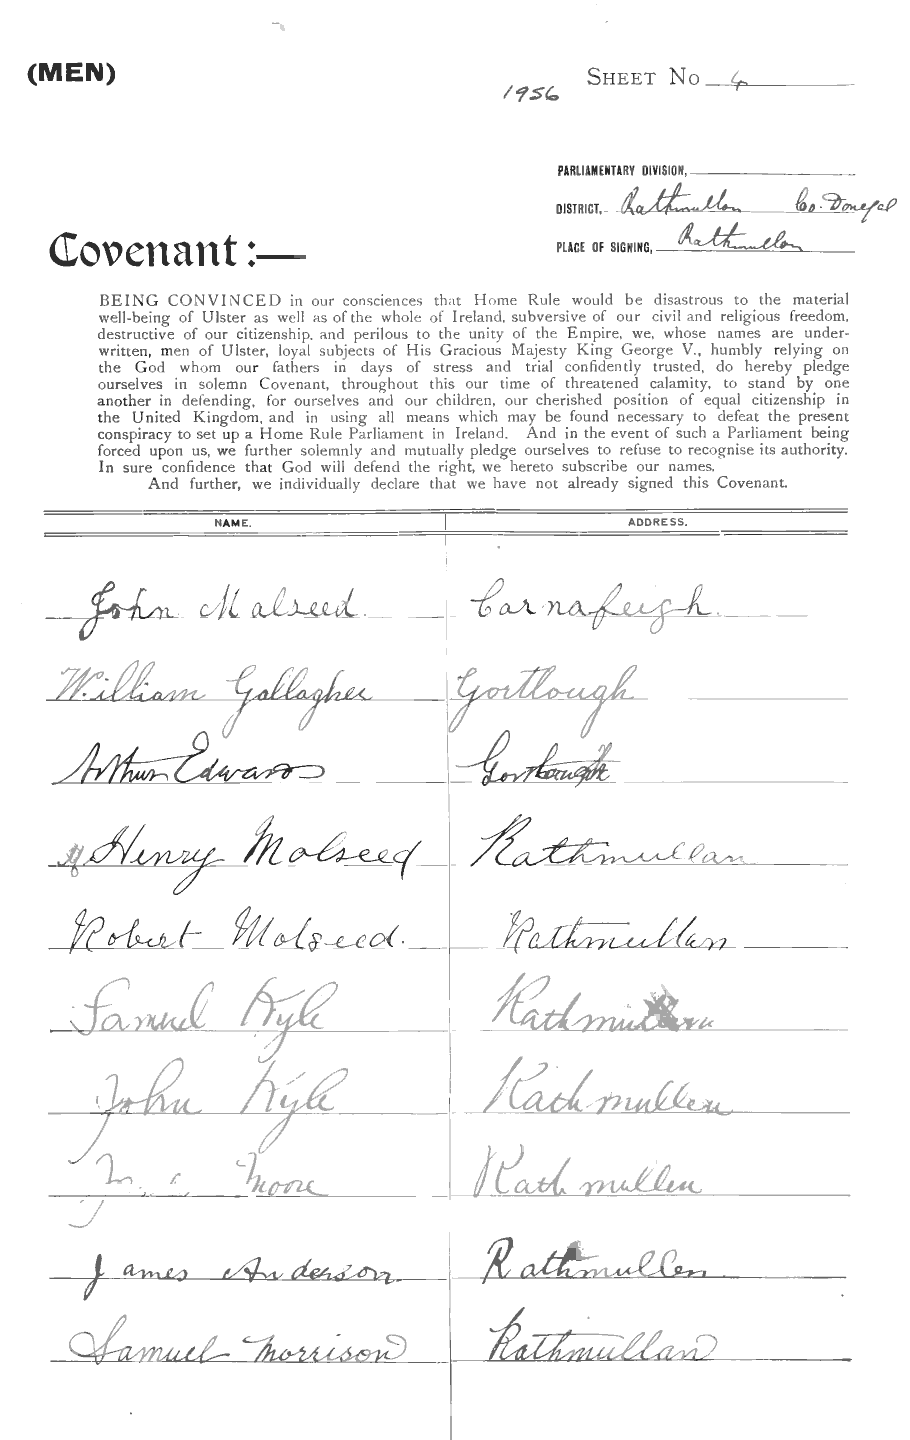 (MEN)
SHEET NO 4
1956
PARLIAMENTARY DIVISION,
DISTRICT, Rathmullan Co. Donegal
PLACE OF SIGNING, Rathmullan
Covenant :—
BEING CONVINCED in our consciences that Home Rule would be disastrous to the material
well-being of Ulster as well as of the whole of Ireland, subversive of our civil and religious freedom,
destructive of our citizenship, and perilous to the unity of the Empire, we, whose names are under-
written, men of Ulster, loyal subjects of His Gracious Majesty King George V., humbly relying on
the God whom our fathers in days of stress and trial confidently trusted, do hereby pledge
ourselves in solemn Covenant, throughout this our time of threatened calamity, to stand by one
another in defending, for ourselves and our children, our cherished position of equal citizenship in
the United Kingdom, and in using all means which may be found necessary to defeat the present
conspiracy to set up a Home Rule Parliament in Ireland. And in the event of such a Parliament being
forced upon us, we further solemnly and mutually pledge ourselves to refuse to recognise its authority.
In sure confidence that God will defend the right, we hereto subscribe our names.
And further, we individually declare that we have not already signed this Covenant.
NAME. ADDRESS.
John Malseed. Carnafeigh.
William Gallagher Gortlough
Arthur Edwards Gortlough
Henry Molseed Rathmullan
Robert Molseed. Rathmullan
Samuel Kyle Rathmullen
John Kyle Rathmullen
Moore Rathmullen
James Anderson. Rathmullen
Samuel Morrison Rathmullan